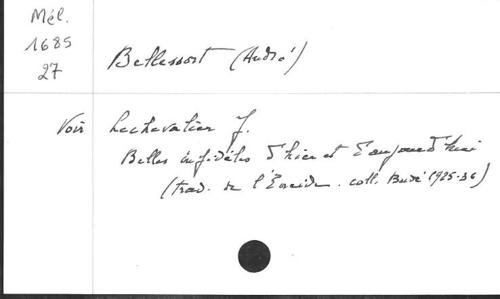 Mél.
1685
27
Bellessort (André)
Voir Lechevalier J.
Belles infidèles d'hier et d'aujourd'hui
(trad. de l'Eneide. coll. Budé 1925-36)